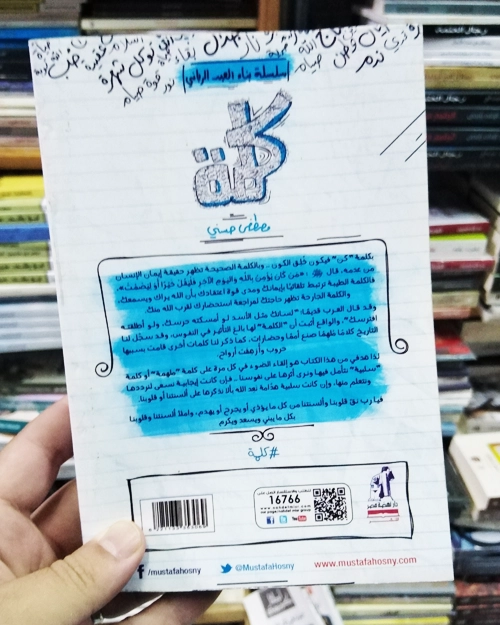 سلسلة بناء العبد الرباني
كلمة
مصطفى حسني
بكلمة "كن" فيكون خُلق الكون - وبالكلمة الصحيحة تظهر حقيقة إيمان الإنسان
من عدمه. قال ﷺ: «من كان يؤمن بالله واليوم الآخر فليقل خيرًا أو ليصمت».
فالكلمة الطيبة ترتبط تلقائيًا بإيمانك ومدى قوة اعتقادك بأن الله يراك ويسمعك.
والكلمة الجارحة تظهر حاجتك لمراجعة استحضارك لقرب الله منك.
وقد قال العرب قديمًا: "لسانك مثل الأسد لو أمسكته حرسك، ولو أطلقته
افترسك". والواقع أثبت أن "الكلمة" لها بالغ التأثير في النفوس، فقد سجّل لنا
التاريخ كلامًا ملهمًا صنع أممًا وحضارات، كما ذكر لنا كلمات أخرى قامت بسببها
حروب وأزهقت أرواح.
لذا هدفي من هذا الكتاب هو إلقاء الضوء في كل مرة على كلمة "ملهمة" أو كلمة
"سلبية" نتأمل فيها ونرى أثرها على نفوسنا - فإن كانت إيجابية نسعى لنرددها
ونتعلم منها، وإن كانت سلبية هدامة نعد الله بألا نذكرها على ألسنتنا أو قلوبنا.
فيا رب نقّ قلوبنا وألسنتنا من كل ما يؤذي أو يجرح أو يهدم، واملأ ألسنتنا وقلوبنا
بكل ما يبني ويسعد ويكرم
#كلمة
16766
www.nahdetmisr.com
دار نهضة مصر
/mustafahosny
@MustafaHosny
www.mustafahosny.com